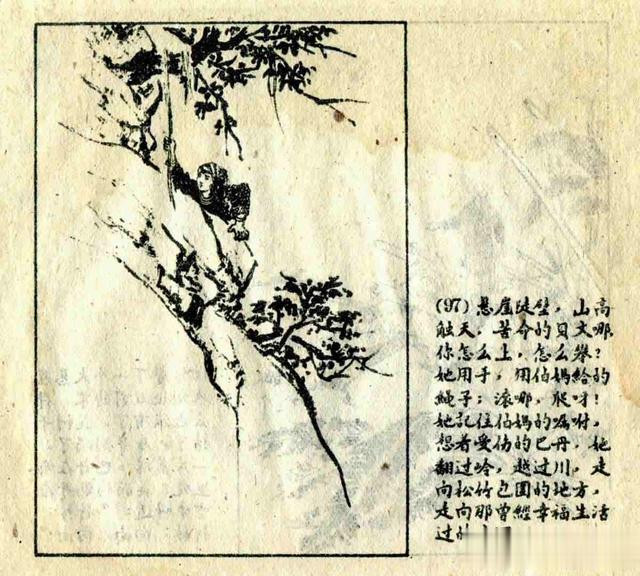 (97) 悬崖陡壁，山高
触天，苦命的贝文哪，
你怎么上，怎么攀？
她用手，用伯媽給的
繩子；滚哪，爬呀！
她記住伯媽的嘱咐，
想着受伤的巴丹，她
翻过岭，越过川，走
向松竹包围的地方，
走向那曾經幸福生活
过的